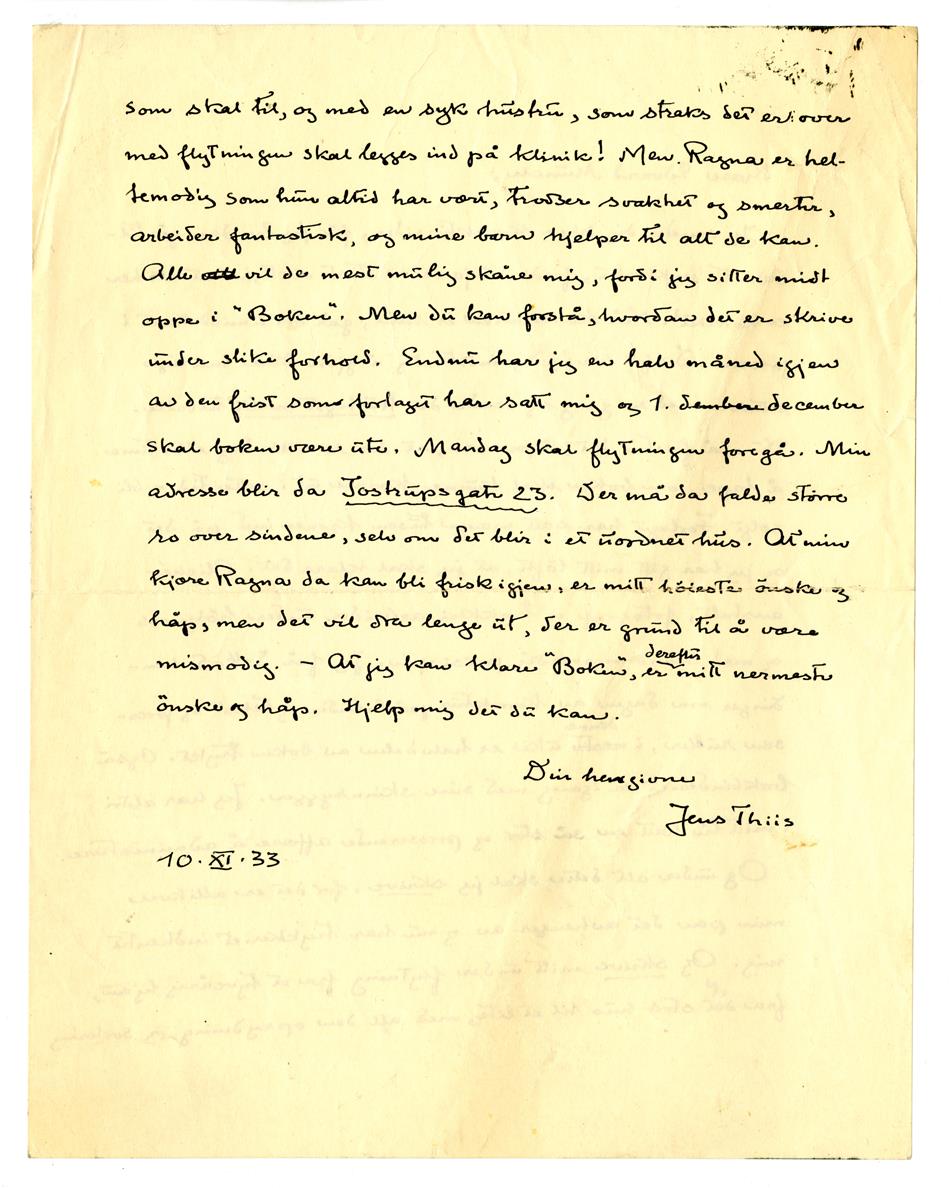 som skal til, og med en syk hustru, som straks det er over
med flytningen skal legges ind på klinik! Men Ragna er hel-
temodig som hun altid har vært, trodser svakhet og smerter,
arbeider fantastisk, og mine barn hjelper til alt de kan.
Alle vil de mest mulig skåne mig, fordi jeg sitter midt
oppe i "Boken". Men du kan forstå, hvordan det er skrive
under slike forhold. Endnu har jeg en halv måned igjen
av den frist som forlaget har satt mig og 1. december
skal boken være ute. Mandag skal flytningen foregå. Min
adresse blir da Tostrupsgate 23. Der må da falde større
ro over sindene, selv om det blir i et uordnet hus. At min
kjære Ragna da kan bli frisk igjen, er mitt høieste önske og
håp, men det vil dra lenge ut, der er grund til å være
mismodig. – At jeg kan klare "Boken", er derefter mitt nermeste
önske og håp. Hjelp mig det du kan.
Din hengivne
Jens Thiis
10.XI.33